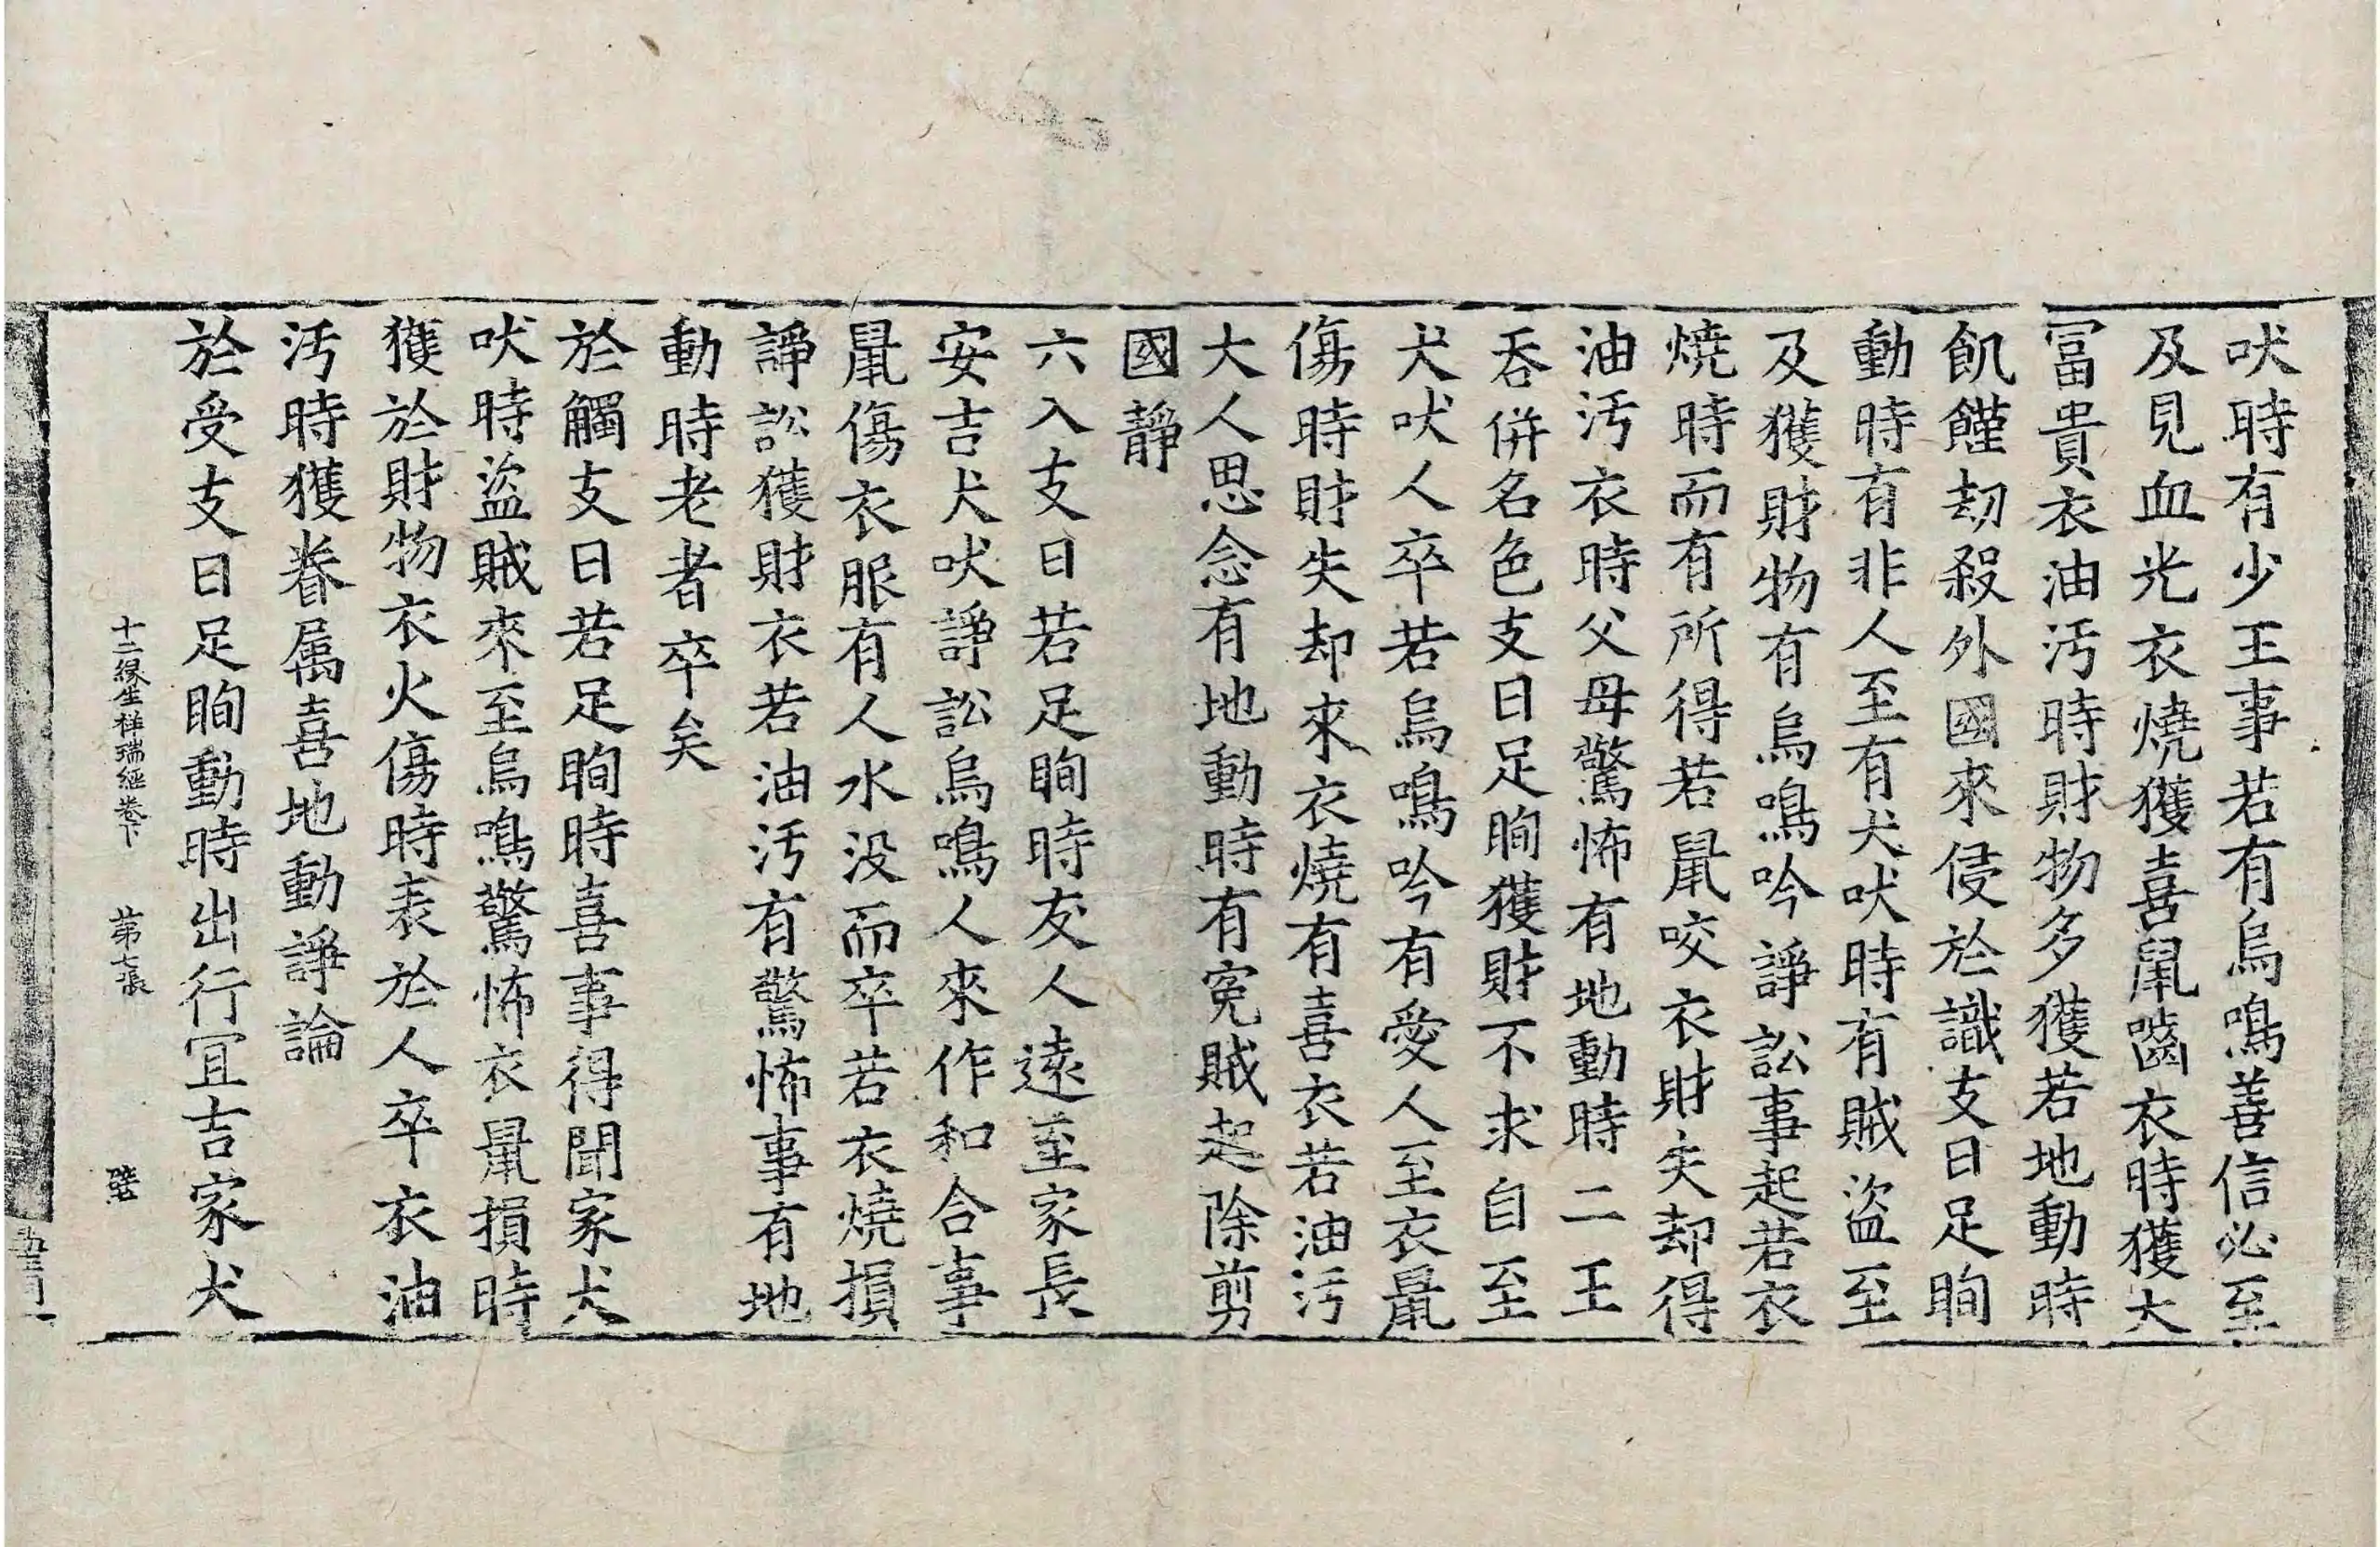 吠時有少王事若有烏鳴善信必至
及見血光衣燒獲喜鼠嚙衣時獲大
冨貴衣油汚時財物多獲若地動時
飢饉劫殺外國來侵於識支日足眴
動時有非人至有犬吠時有賊盜至
及獲財物有烏鳴吟諍訟事起若衣
燒時而有所得若鼠咬衣財失却得
油汚衣時父母驚怖有地動時二王
吞併名色支日足眴獲財不求自至
犬吠人卒若烏鳴吟有愛人至衣鼠
傷時財失却來衣燒有喜衣若油汚
大人思念有地動時有寃賊起除剪
國靜
六入支日若足眴時友人遠至家長
安吉犬吠諍訟烏鳴人來作和合事
鼠傷衣服有人水没而卒若衣燒損
諍訟獲財衣若油汚有驚怖事有地
動時老者卒矣
於觸支日若足眴時喜事得聞家犬
吠時盜賊來至烏鳴驚怖衣鼠損時
獲於財物衣火傷時表於人卒衣油
汚時獲眷属喜地動諍論
於受支日足眴動時出行冝吉家犬
十二緣生祥瑞經卷下 苐七張